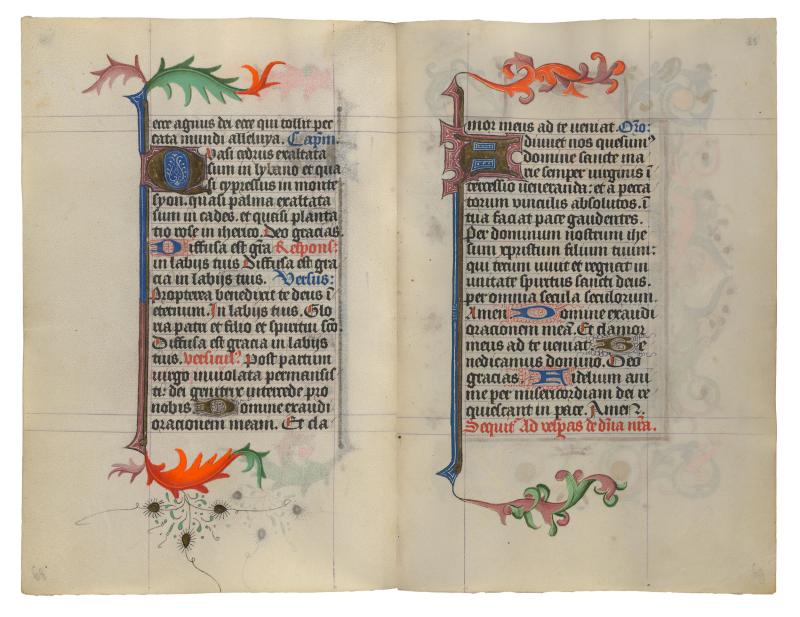 ecce agnus dei ecce qui tollit pec
cata mundi alleluya. Capm.
Quasi cedrus exaltata
sum in lybano et qua
si cypressus in monte
syon. quasi palma exaltata
sum in cades. et quasi planta
tio rose in iherico. Deo gracias.
Diffusa est gra Respons:
in labijs tuis Diffusa est gra
cia in labijs tuis. Versus:
Propterea benedixit te deus i
eternum. In labijs tuis. Glo
ria patri et filio et spiritui sco.
Diffusa est gracia in labijs
tuis. versicul? Post partum
virgo inviolata permansis
ti: dei genitrix intercede pro
nobis Domine exaudi
oracionem meam. Et cla
25
mor meus ad te veniat. Oro:
Adiuvet nos quesum?
domine sancte ma
rie semper virginis i
tercessio veneranda: et a pecca
torum vinculis absolutos. i
tua faciat pace gaudentes.
Per dominum nostrum ihe
sum xpristum filium tuum:
qui tecum vivit et regnat in
unitate spiritus sancti deus.
per omnia secula seculorum.
Amen Domine exaudi
oracionem mea. Et clamor
meus ad te veniat. Be
nedicamus domino. Deo
gracias. Fidelium ani
me per misericordiam dei re
quiescant in pace. Amen.
Sequit Ad vespas de dna nra.